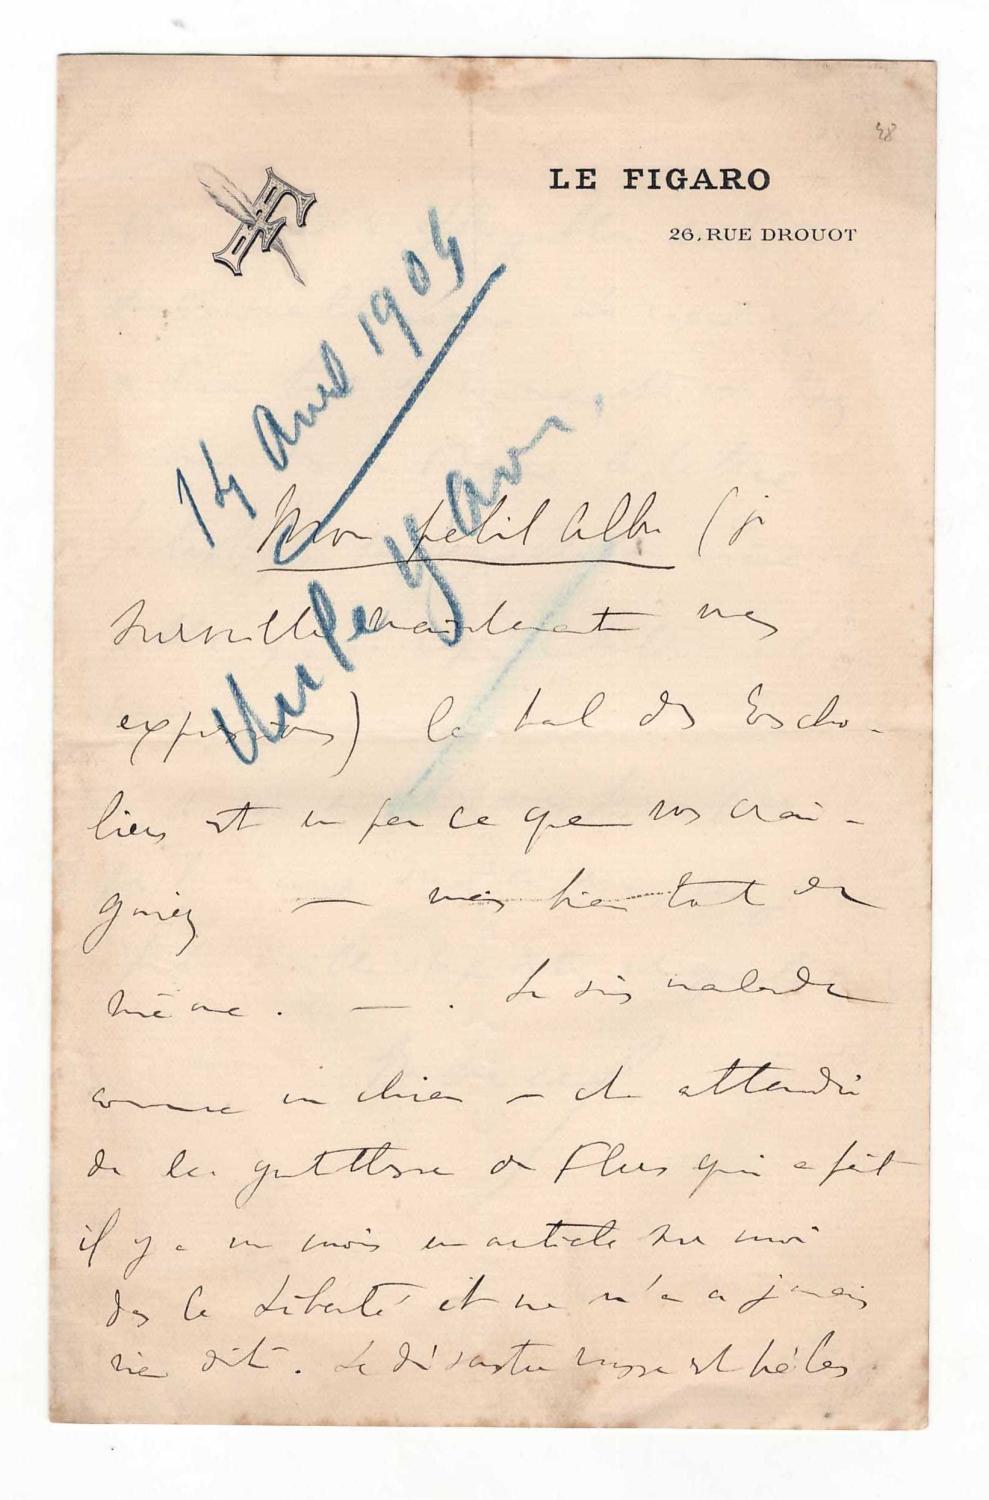 48
LE FIGARO
26, RUE DROUOT
14 Avril 1904
Mon petit Albu (je
surveille maintenant mes
expressions) le bal des Escho-
liers est un peu ce que vous crai-
gniez — mais bien tout de
même. — . Je suis malade
comme un chien — et attendri
de la gentillesse de Flers qui a fait
il y a un mois un article sur moi
dans la Liberté et ne m'en a jamais
rien dit. Le désastre russe est hélas